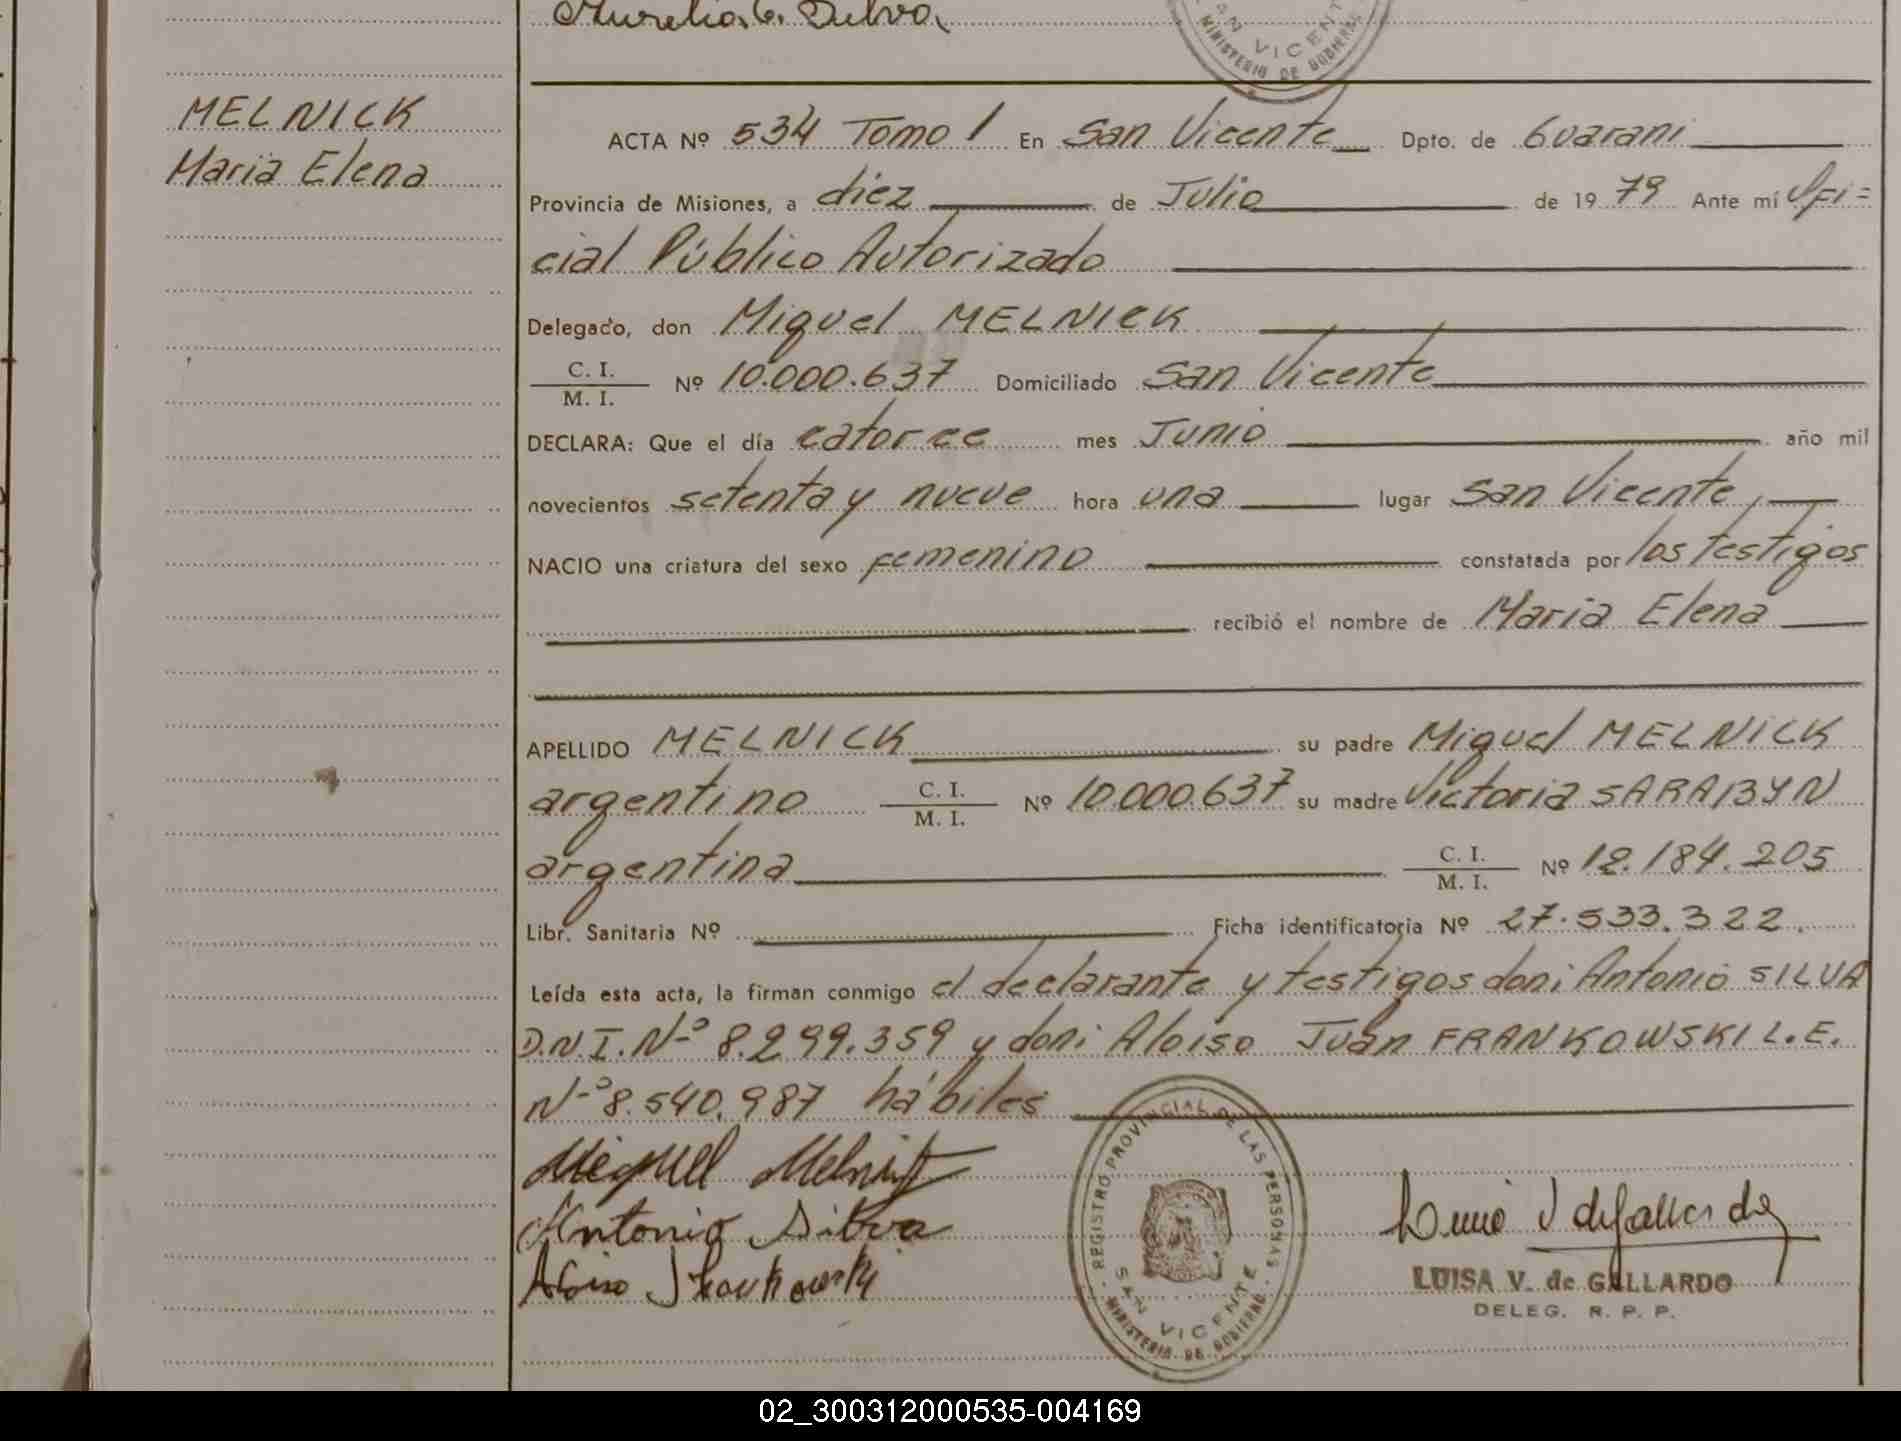 Aurelio C. Silva
SAN VICENTE
MINISTERIO DE GOBIERNO
MELNICK
Maria Elena
ACTA Nº 534 Tomo 1 En San Vicente Dpto. de Guarani
Provincia de Misiones, a diez de Julio de 19 79 Ante mí Ofi=
cial Público Autorizado
Delegado, don Miguel MELNICK
C. I.
M. I. Nº 10.000.637 Domiciliado San Vicente
DECLARA: Que el día catorce mes Junio año mil
novecientos setenta y nueve hora una lugar San Vicente,
NACIO una criatura del sexo femenino constatada por los testigos
recibió el nombre de Maria Elena
APELLIDO MELNICK su padre Miguel MELNICK
argentino C. I. M. I. Nº 10.000.637 su madre Victoria SARABYN
argentina C. I. M. I. Nº 12.184.205
Libr. Sanitaria Nº Ficha identificatoria Nº 27.533.322.
Leída esta acta, la firman conmigo el declarante y testigos don: Antonio SILVA
D.N.I. Nº 8.299.359 y don: Aloiso Juan FRANKOWSKI L.E.
Nº 8.540.987 hábiles
Miguel Melnik
Antonio Silva
Aloiso J Frankowski
REGISTRO PROVINCIAL DE LAS PERSONAS
SAN VICENTE
MINISTERIO DE GOBIERNO
LUISA V. de GALLARDO
DELEG. R. P. P.
02_300312000535-004169